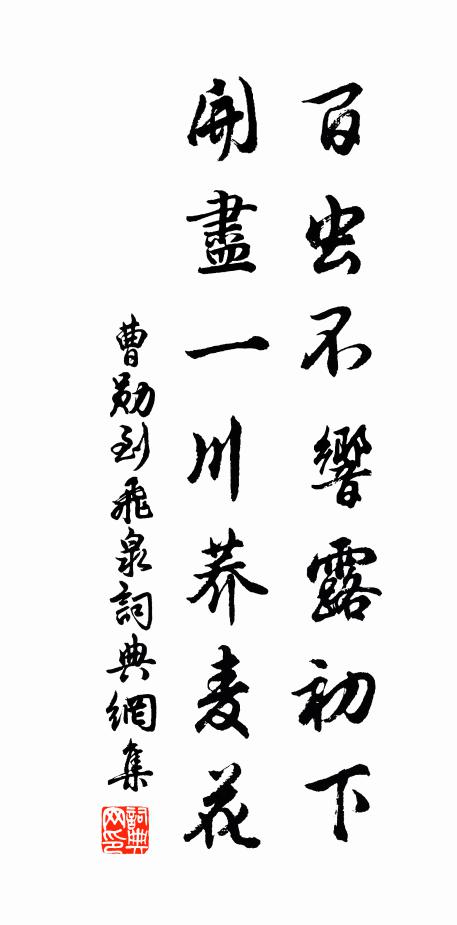 百虫不響露初下
開盡一川蕎麦花
曹勛到飛泉詞典網集
詞典
网印